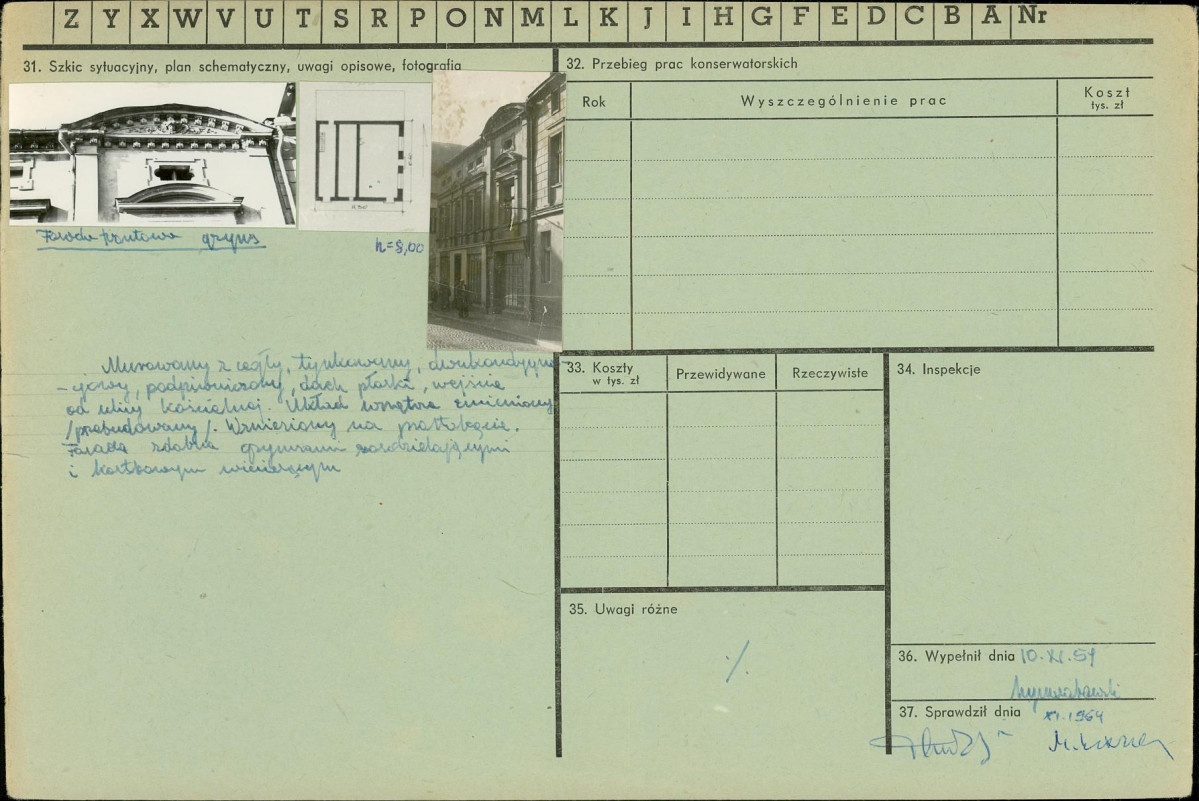 Z Y X W V U T S R P O N M L K J I H G F E D C B A Nr
31. Szkic sytuacyjny, plan schematyczny, uwagi opisowe, fotografia
Fasada frontowa gzyms
h=8,00
Murowany z cegły, tynkowany, dwukondygna-
-cjowy, podpiwniczony, dach płaski, wejście
od ulicy Kościelnej. Układ wnętrza zmieniony
/przebudowany/. Wzniesiony na prostokącie.
Fasada zdobna gzymsami rozdzielającymi
i kostkowym wieńczącym
32. Przebieg prac konserwatorskich
Rok
Wyszczególnienie prac
Koszt
tys. zł
33. Koszty
w tys. zł
Przewidywane
Rzeczywiste
34. Inspekcje
35. Uwagi różne
·/.
36. Wypełnił dnia 10.XI.59
37. Sprawdził dnia XI.1964